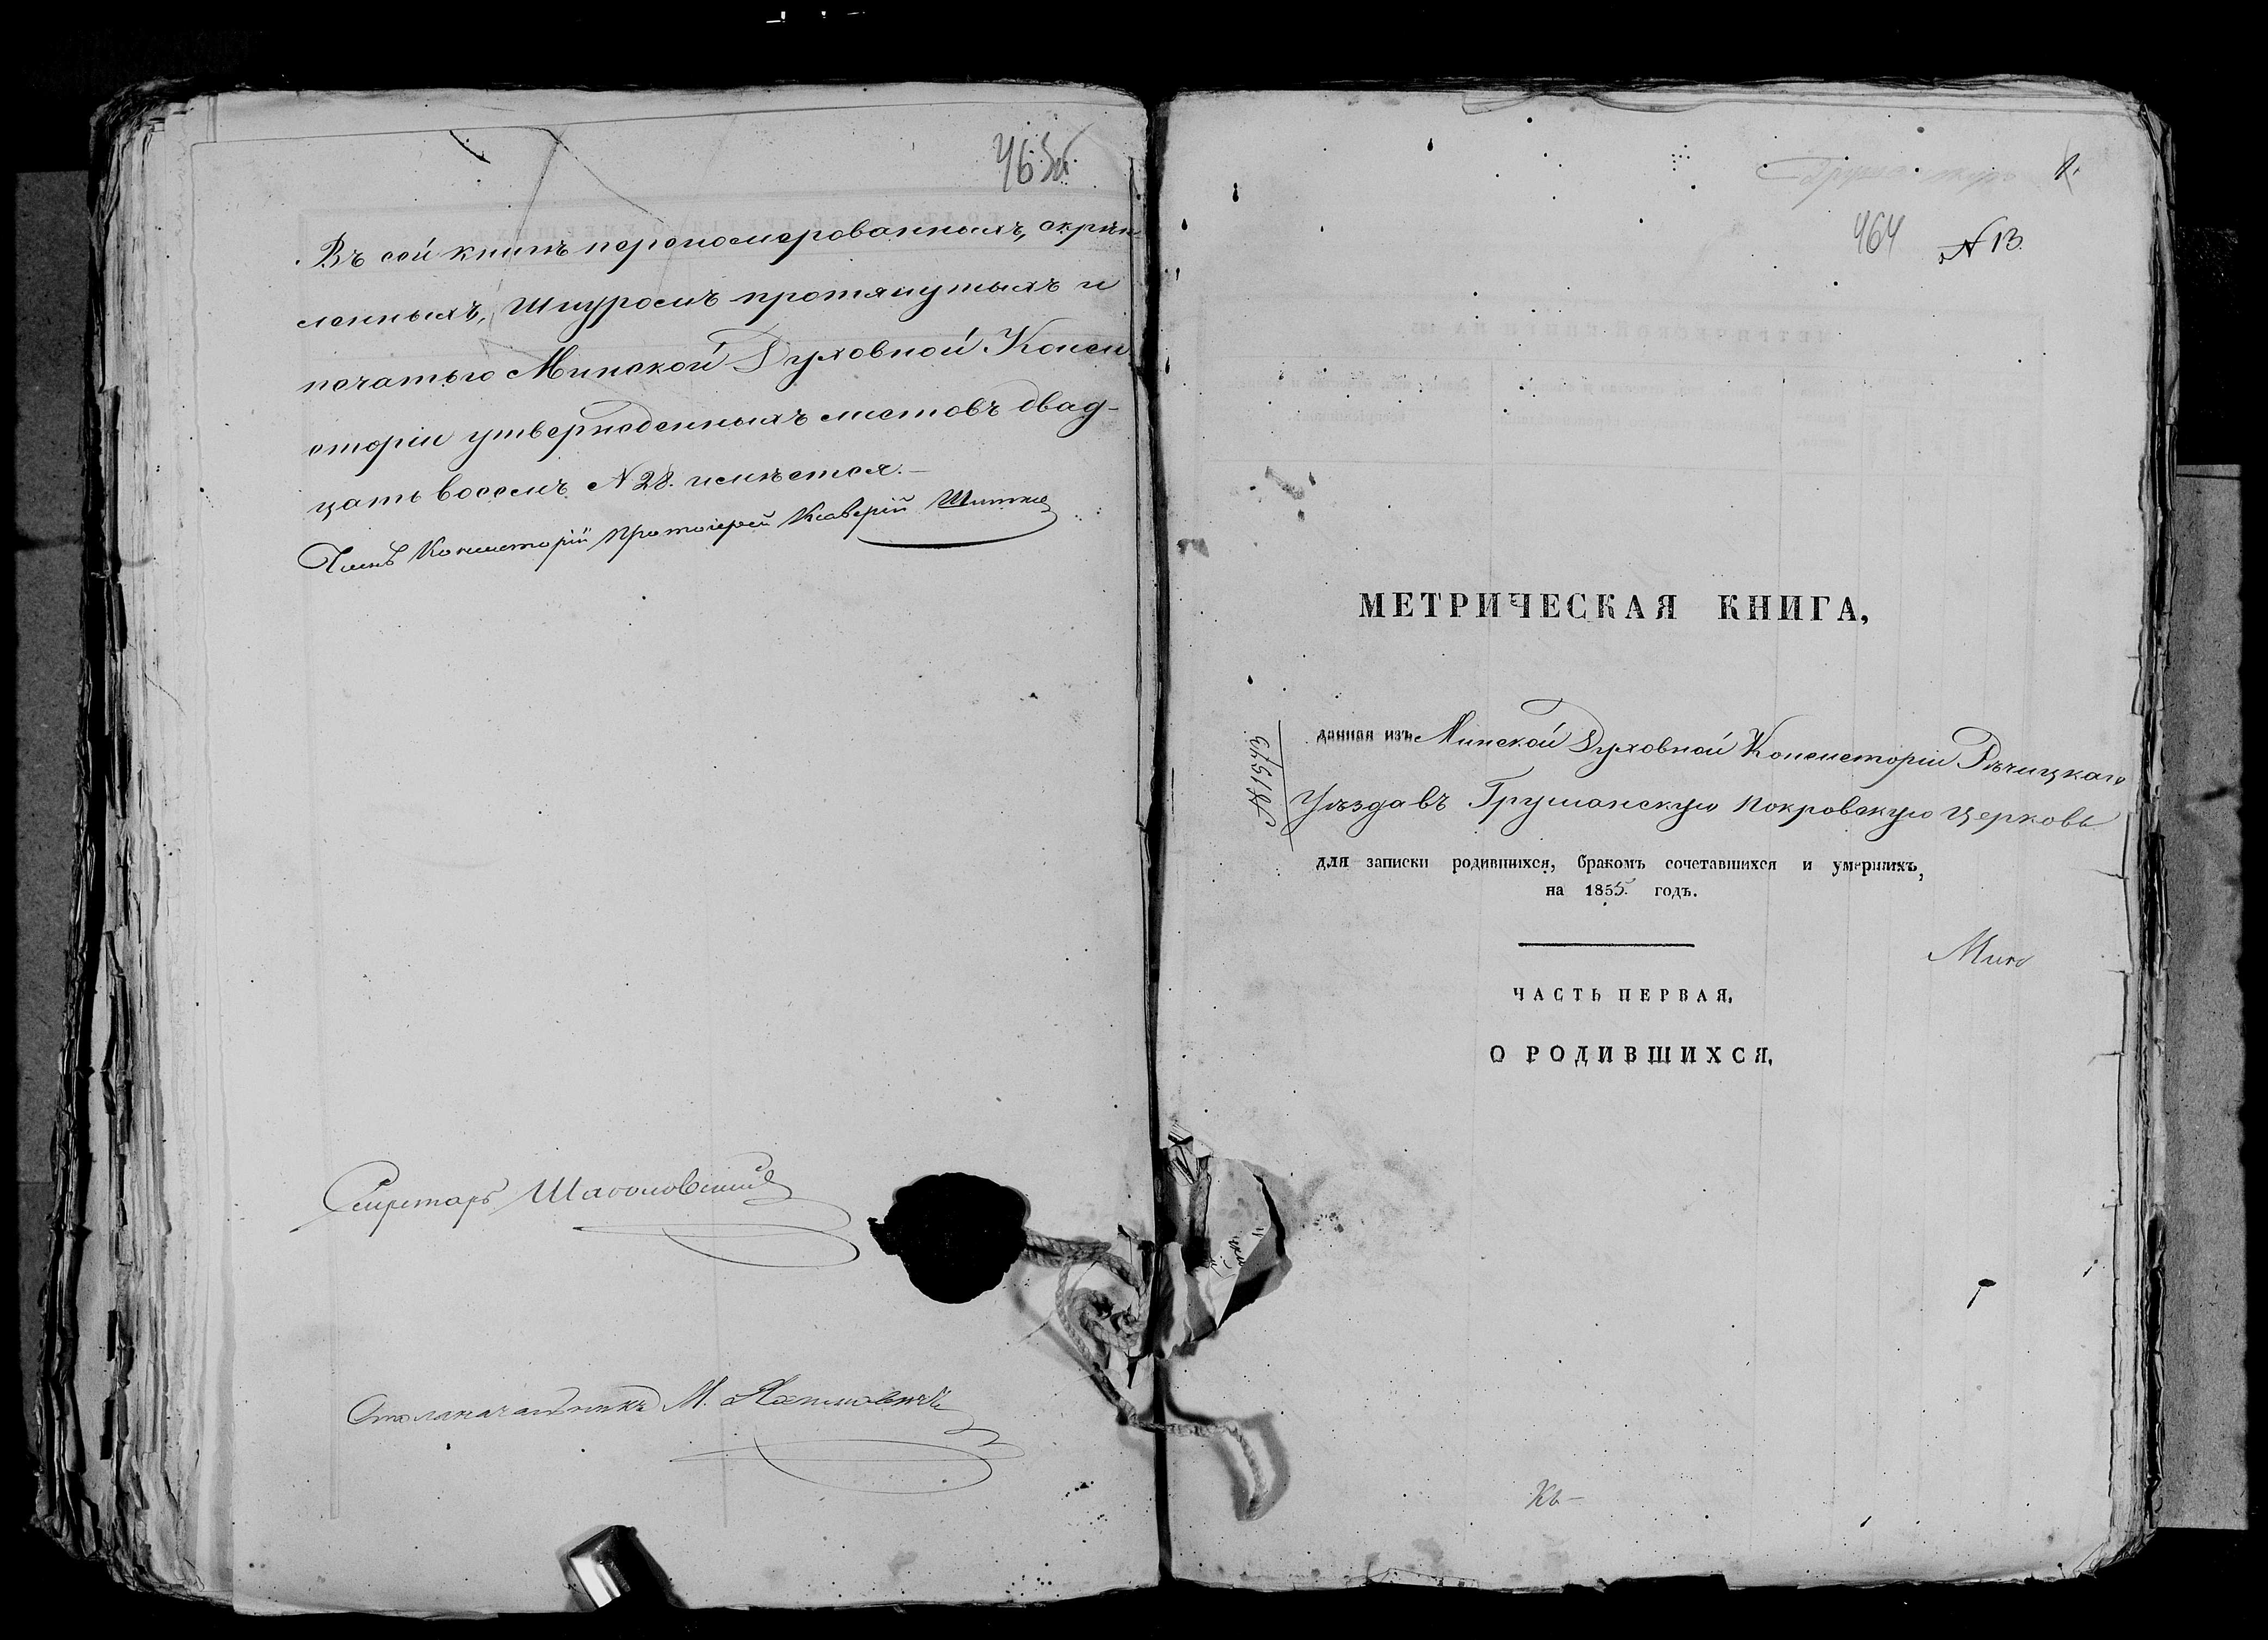 463об
Въ сей книгѣ переномерованныхъ, скрѣп-
ленныхъ, шнуромъ протянутыхъ и
печатью Минской Духовной Конси
сторіи утвержденныхъ листовъ двад-
цать восемь N 28. имѣется.
Членъ Консисторіи Протоіерей Ксаверій
Секретарь
Столоначальникъ М.
1.
464 N 13.
МЕТРИЧЕСКАЯ КНИГА,
N 1573
данная изъ Минской Духовной Консисторіи Рѣчицкаго
Уѣзда въ Грушанскую Покровскую Церковь
для записки родившихся, бракомъ сочетавшихся и умершихъ,
на 1855. годъ.
ЧАСТЬ ПЕРВАЯ,
О РОДИВШИХСЯ,